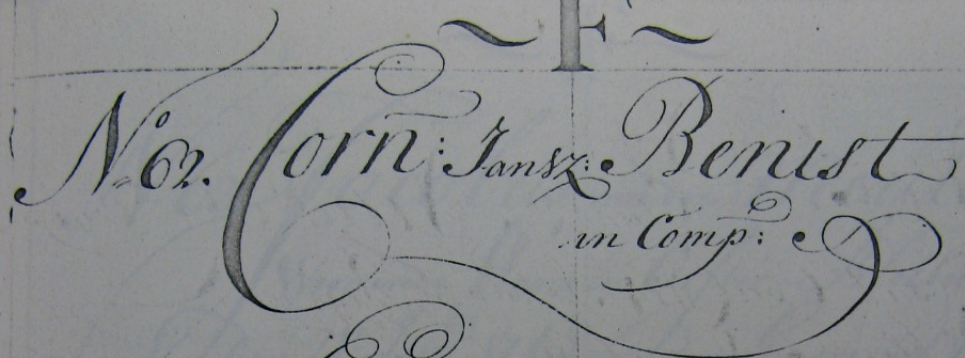 ~ F ~
No. 62. Corn: Jansz: Benist
in Comp: